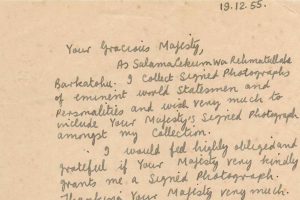 19.12.55.
Your Gracious Majesty,
As Salamalekum Wa Rehmatullahe
Barkatohu. I collect Signed Photographs
of eminent world Statesmen and
Personalities and wish very much to
include Your Majesty's Signed Photograph
amongst my Collection.
I would feel highly obliged and
grateful if Your Majesty very kindly
grants me a Signed Photograph.
Thanking Your Majesty very much.